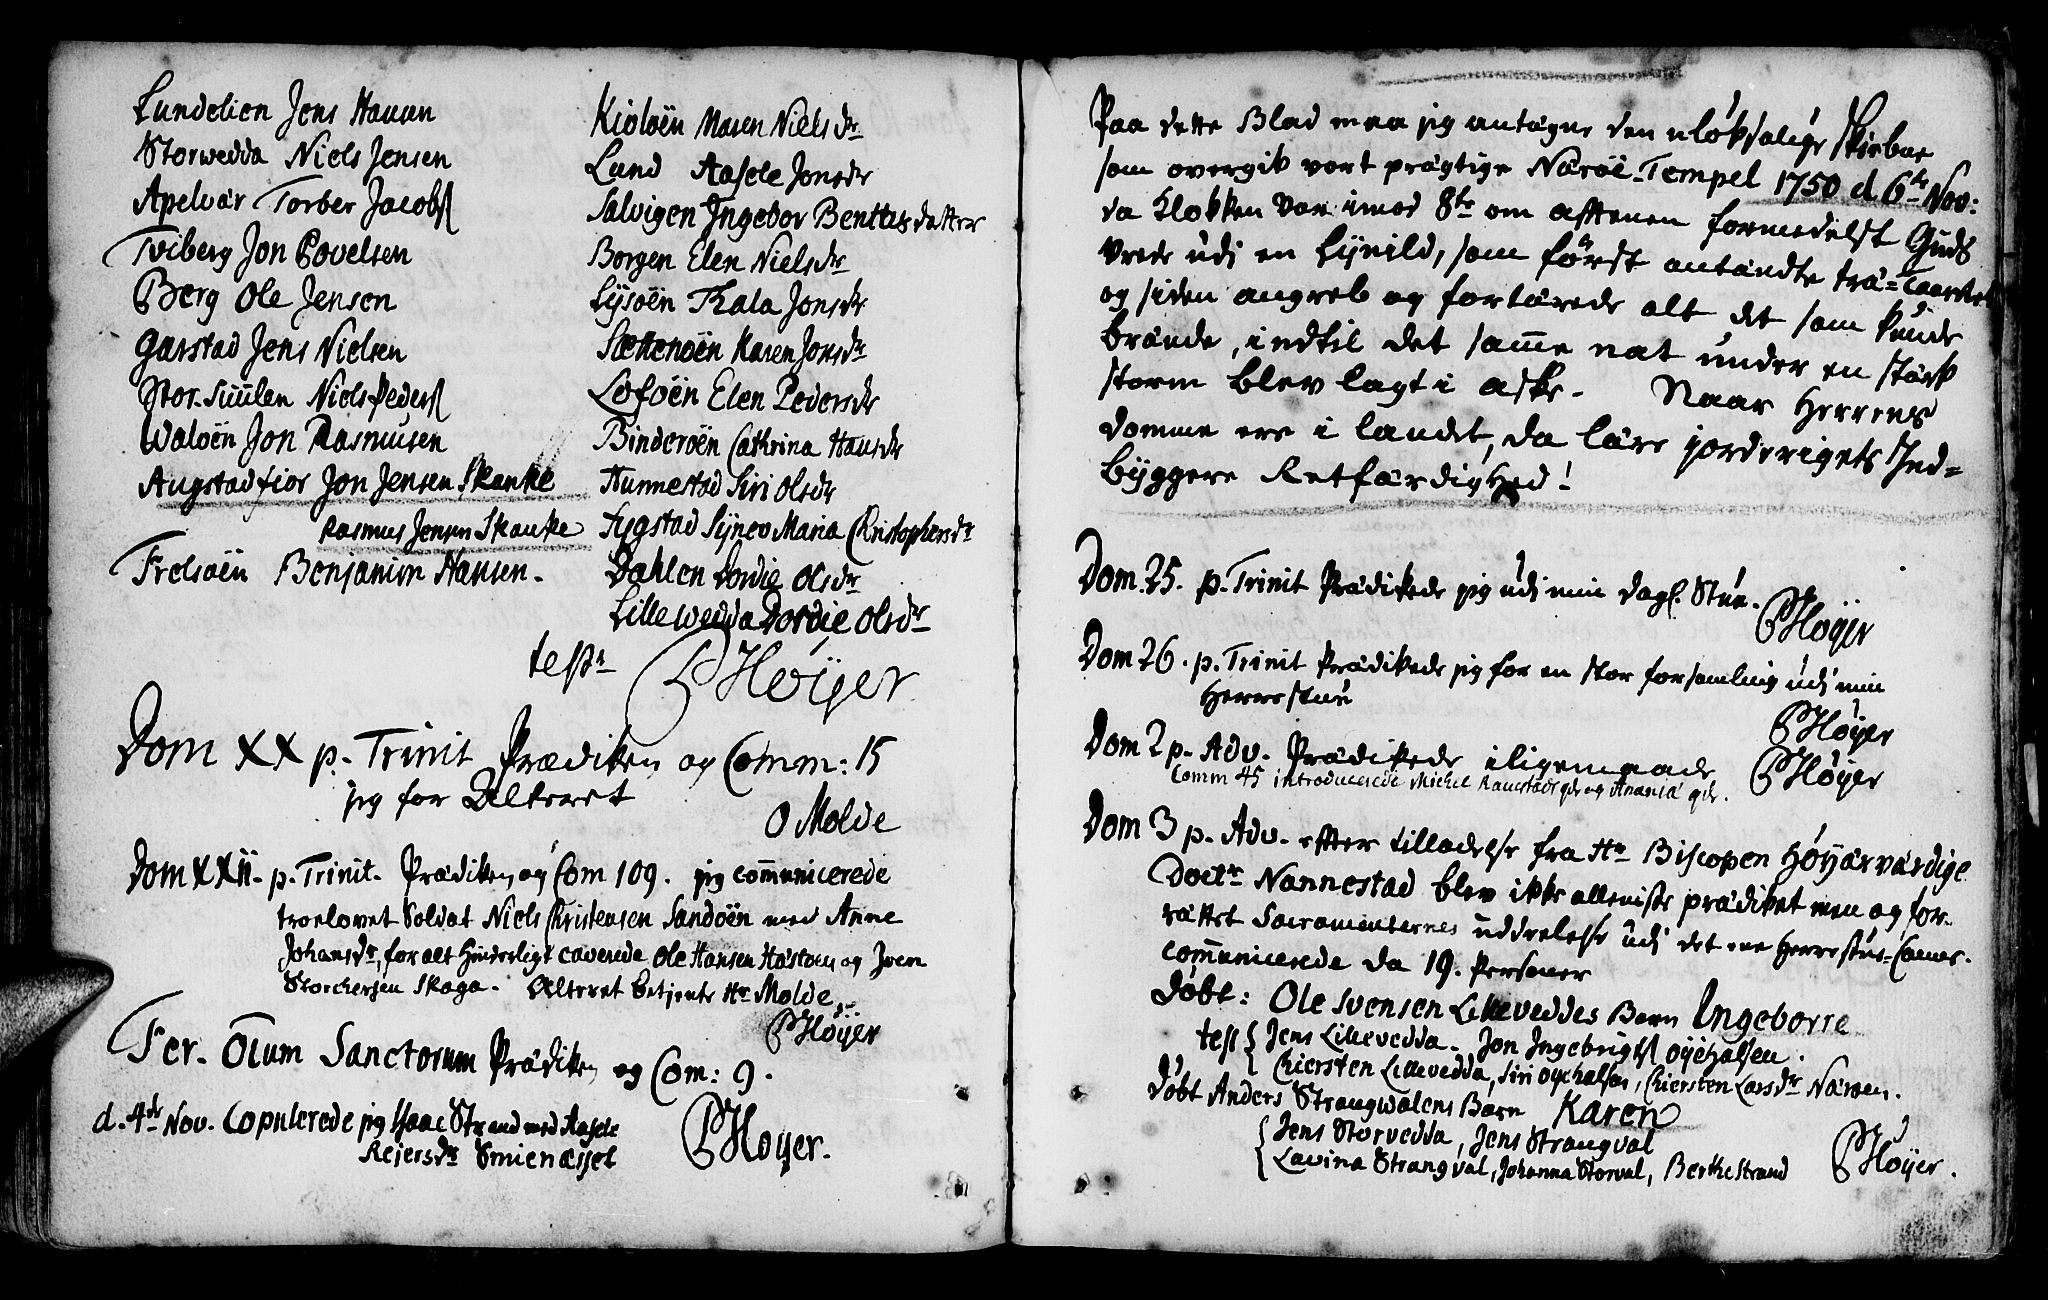 Lundelien Jens Hansen
Storwedda Niels Jensen
Apelvär Torber Jacobs
Tviberg Jon Povelsen
Berg Ole Jensen
Garstad Jens Nielsen
Stor-Suulen Niels Peders
Waloën Jon Rasmusen
Augstadfior Jon Jensen Skanke
Rasmus Jensen Skanke
Frelsöen Benjamin Hansen.
Kioloën Maren Niels dr
Lund Aasele Jonsdr
Salvigen Ingebor Bentts datter
Borgen Elen Nielsdr
Lysoën Thala Jonsdr
Slettenoën Karen Jonsdr
Lofoën Elen Pedersdr
Binderoën Cathrina Hansdr
Hunnestad Siri Olsdr
Fygstad Synev Maria Christophersdr
Dahlen Dordie Olsdr
Lillewedda Dordie Olsdr
test
PHøyer
Dom XX p. Trinit Prædiken og Comm: 15
jeg for Alteret
O Molde
Dom XXII. p. Trinit. Prædiken og Com 109. jeg communicerede
troelovet Soldat Niels Christensen Sandöen med Anne
Johansdr, for alt Hinderligt caverede Ole Hansen og Iven
Storchersen Skaga. Alteret betjente Hr Molde
PHøyer
Fer. Olum Sanctorum Prædiken og Com: 9.
d. 4de Nov. Copulerede jeg Isaac Strand med Aasele
Reiersdr Smienæsset
PHøyer.
Paa dette Blad maa jeg antegne den uløksalige Skiebne
som overgik vort prægtige Näröe-Tempel 1750 d. 6te Nov:
da Klokken var imod 8te om aftenen formedelst Guds
vrede udi en Lynild, som först antændte trä-Taarnet
og siden angreb og fortärede alt det som kunde
brände, indtil det samme nat under en stärk
storm blev lagt i aske. Naar Herrens
domme ere i landet, da läre jorderigets Ind=
byggere Retfärdighed!
Dom. 25. p. Trinit Prädikede jeg udi min dagl. Stue.
PHøyer
Dom 26. p. Trinit Prädikede jeg for en stor forsamling udi min
Herrestue
PHøyer
Dom 2 p. Adv. Prädikede iligemaade
PHøyer
Comm 45 introducerede Michel Ramstads qde og Anania qde.
Dom 3 p. Adv. efter tilladelse fra Hr Biscopen Høyärvärdige
Doctr Nannestad blev ikke alleniste prädiket men og for-
rättet Sacramenternes uddelelse udi det ene Herrestue-Camer.
communicerede da 19. Personer
Døbt: Ole Svensen Lilleveddes Barn Ingeborre
test Jens Lillevedda. Jon Ingebrigts oyehalsen.
Chiersten Lillevedda, Siri oyehalsen, Chiersten Larsdr Näroen.
Døbt Anders Strangwalens Barn Karen
Jens Storvedda, Jens Strangval
Lavina Strangval, Johanna Storval, Berthe Strand
PHøyer.